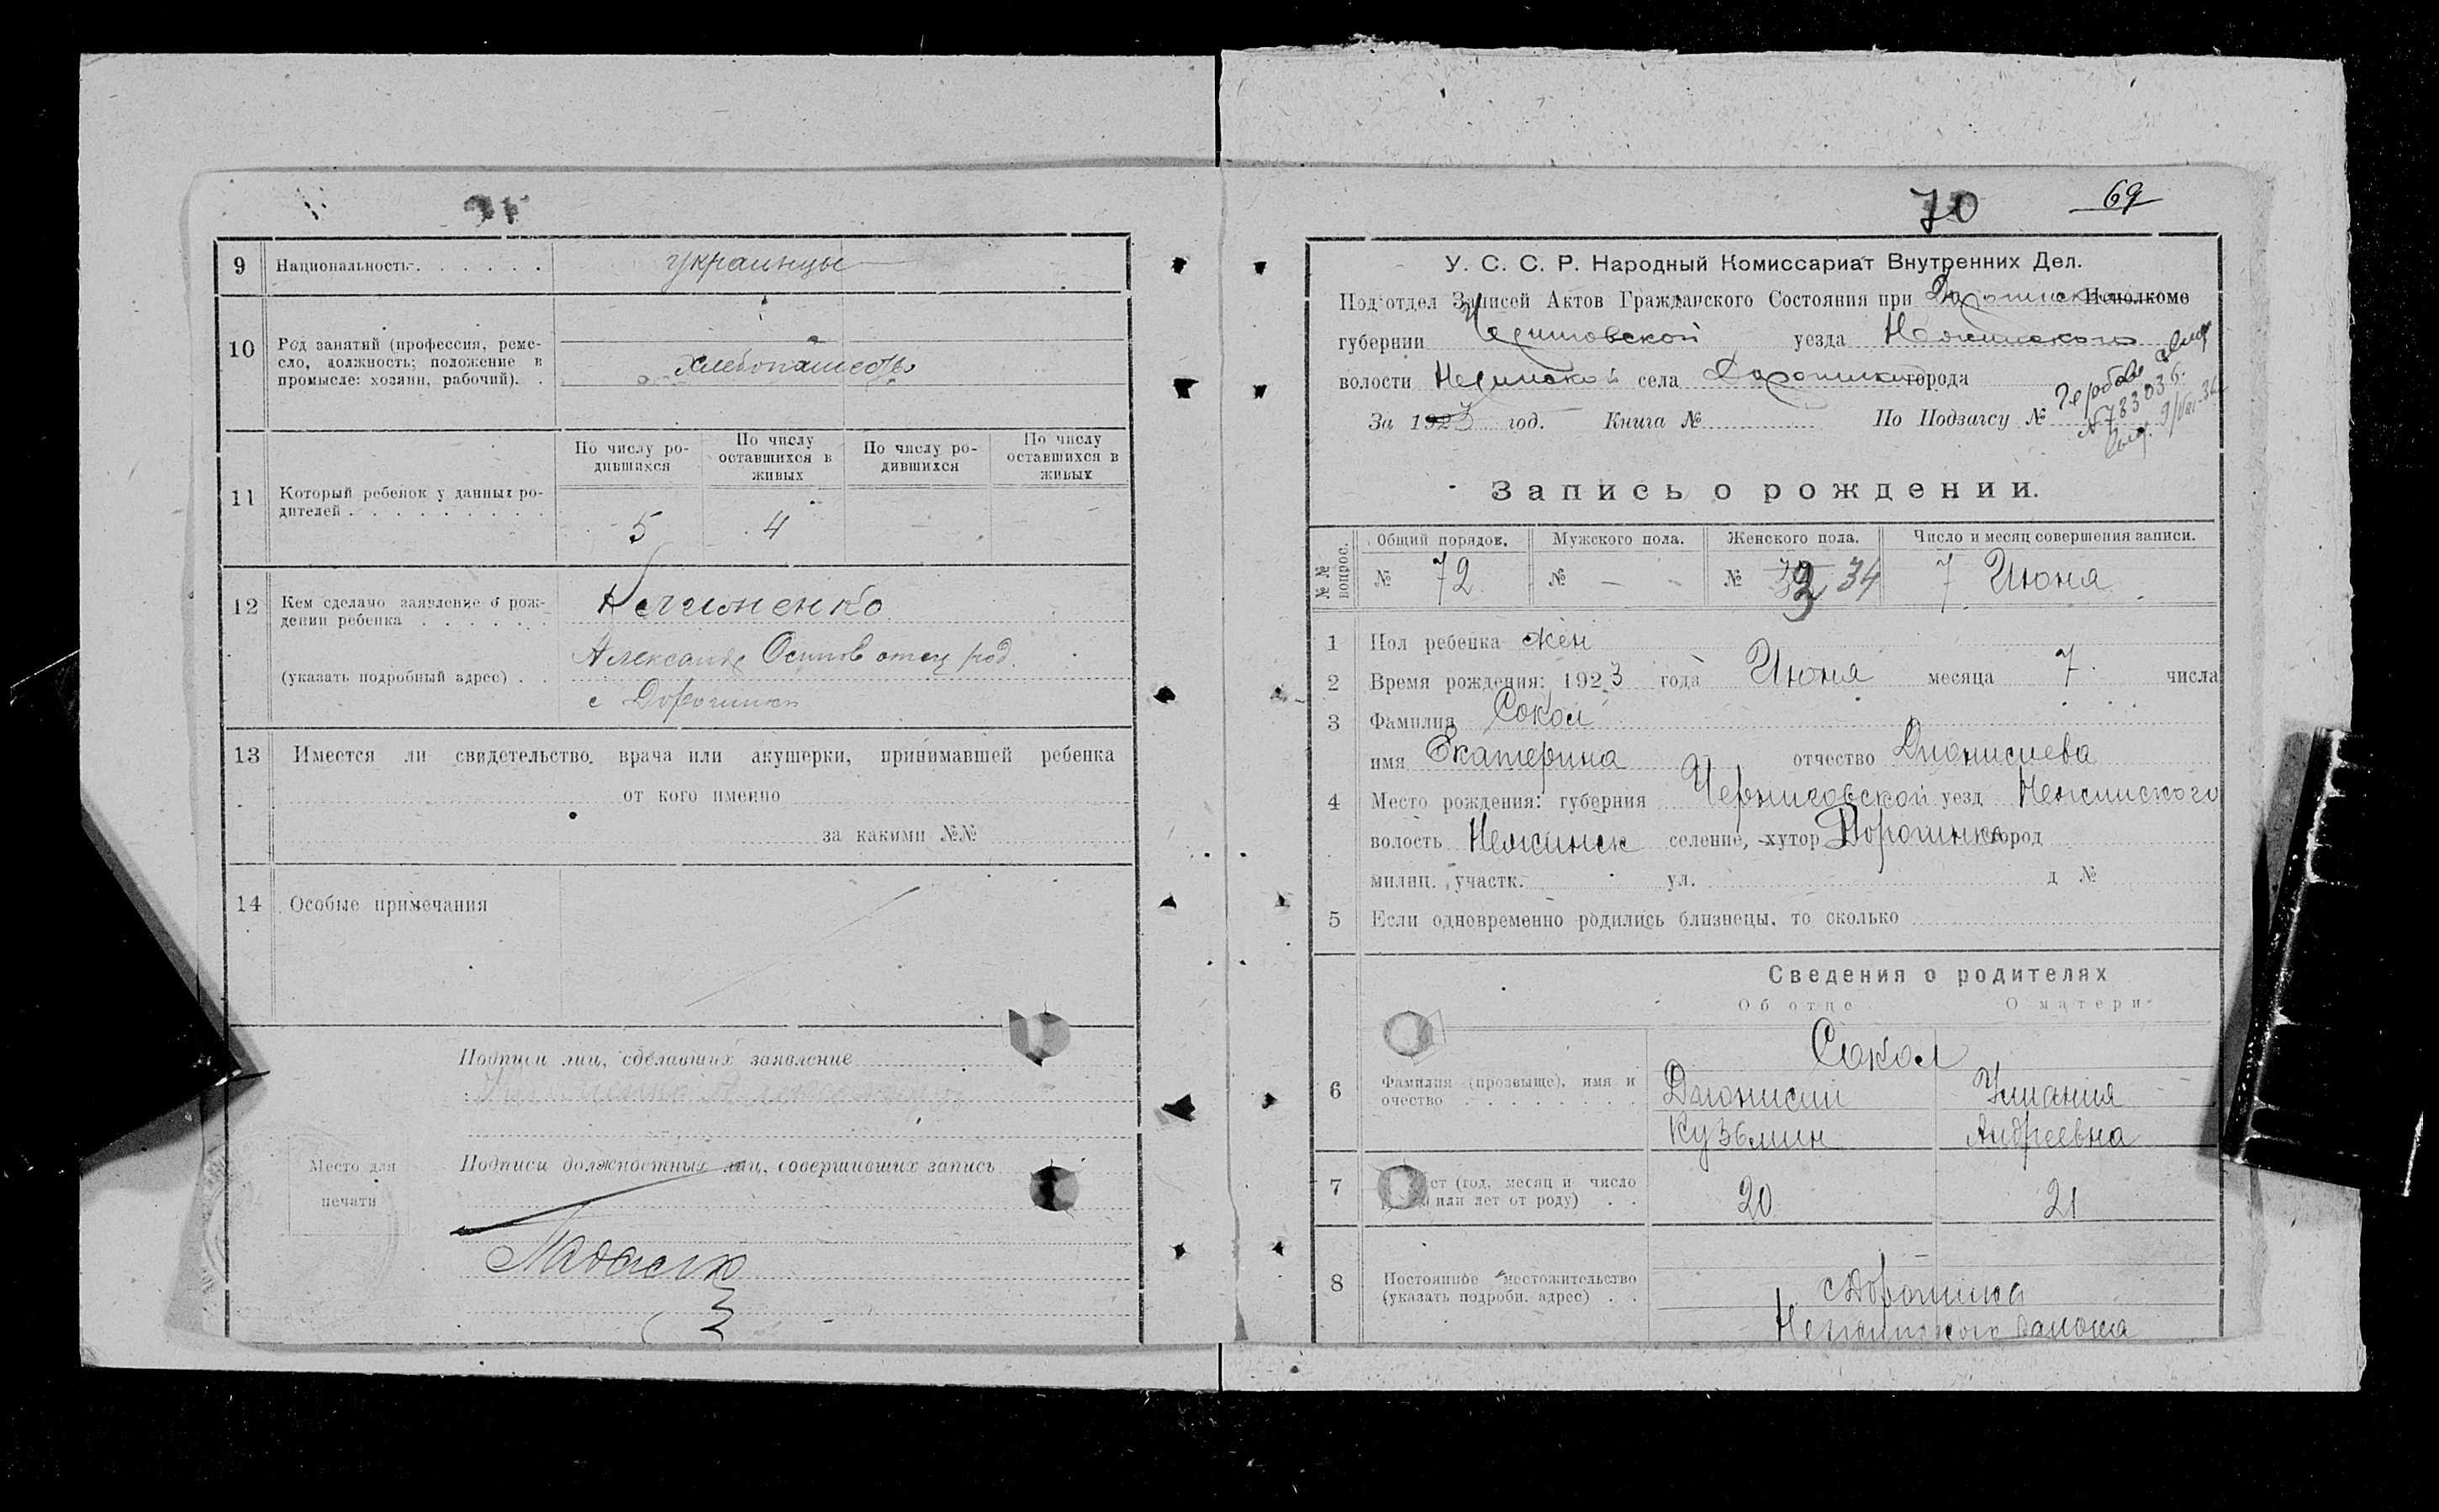 9 Национальность . . . . . . украинцы
10 Род занятий (профессия, реме-
сло, должность; положение в
промысле: хозяин, рабочий). .
По числу ро-
дившихся
По числу
оставшихся в
живых
По числу ро-
дившихся
По числу
оставшихся в
живых
11 Который ребенок у данных ро-
дителей . . . . . . . . .
5 4 — —
12 Кем сделано заявление о рож-
дении ребенка . . . . . .
(указать подробный адрес) . .
Осипов отец род.
с
13 Имеется ли свидетельство врача или акушерки, принимавшей ребенка
от кого именно
за какими №№
14 Особые примечания
Подписи лиц, сделавших заявление
Место для
печати
Подписи должностных лиц, совершивших запись
70 69
У. С. С. Р. Народный Комиссариат Внутренних Дел.
Под‘отдел Записей Актов Гражданского Состояния при Исполкоме
губернии Черниговской уезда Нежинского
волости села города
За 1923 год. Книга № По Подзагсу №
Запись о рождении.
№ № вопрос.
Общий порядок. Мужского пола. Женского пола. Число и месяц совершения записи.
№ 72 № — № 34 7 Июня
1 Пол ребенка жен
2 Время рождения: 1923 года Июня месяца 7 числа
3 Фамилия Сокол
имя Екатерина отчество Дионисиева
4 Место рождения: губерния Черниговской уезд Нежинского
волость Нежинск селение, хутор Дорогинка город
милиц. участк. ул. д №
5 Если одновременно родились близнецы, то сколько
Сведения о родителях
Об отце О матери
Сокол
6 Фамилия (прозвыще), имя и
очество . . . . . . . .
Дионисий
Кузьмин
Андреевна
7 ст (год, месяц и число
или лет от роду) . .
20 21
8 Постоянное местожительство
(указать подробн. адрес) . .
с Дорогинка
Нежинского района